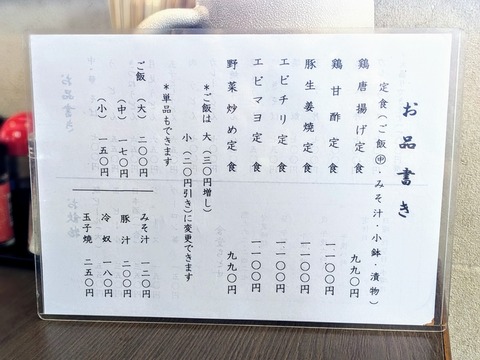 お品書き
定食(ご飯㊥・みそ汁・小鉢・漬物)
鶏唐揚げ定食 九九〇円
鶏甘酢定食 一一〇〇円
豚生姜焼定食 一一〇〇円
エビチリ定食 一一〇〇円
エビマヨ定食 一一〇〇円
野菜炒め定食 九九〇円
*ご飯は 大(三〇円増し)
小(二〇円引き)に変更できます
*単品もできます
ご飯(大)二〇〇円
(中)一七〇円
(小)一五〇円
みそ汁 一二〇円
豚汁 二〇〇円
冷奴 一八〇円
玉子焼 二五〇円